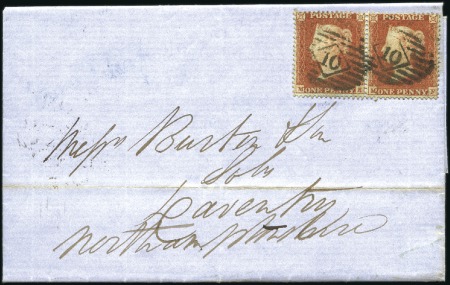 POSTAGE POSTAGE
10 10
ONE PENNY ONE PENNY
Messrs Burton & Son
Solrs
Daventry
Northamptonshire